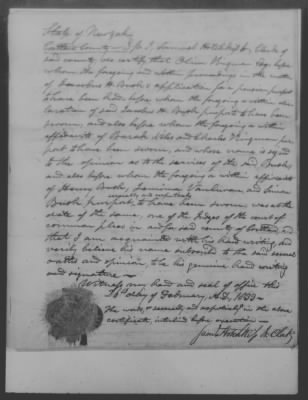 State of New York
County } ss. I, Samuel Hotchkiss Jr, Clerk of
said county, do certify that Oliver Esqr before
whom the foregoing and within proceedings in the matter
of H. application for a pension purport
to have been had, before whom the foregoing & within
declaration of said Brush purports to have been
sworn, and also before whom the foregoing & within
affidavits of and Charles purport
to have been sworn, and whose name is signed
to the opinion as to the services of the said Brush
and also before whom the foregoing & within affidavits
of Henry Brush, and
severally and respectively
Brush purport, to have been sworn was at the
date of the same, one of the Judges of the court of
common pleas in and for said county of and
that I am acquainted with his hand writing, and
verily believe his name subscribed to the said several
oaths and opinion, to be his genuine hand writing
and signature —
Witness my hand and seal of office this
day of February, A.D. 1833 —
The words, & severally and respectively in the above
certificate, interlined before execution —
Saml Hotchkiss Jr Clerk